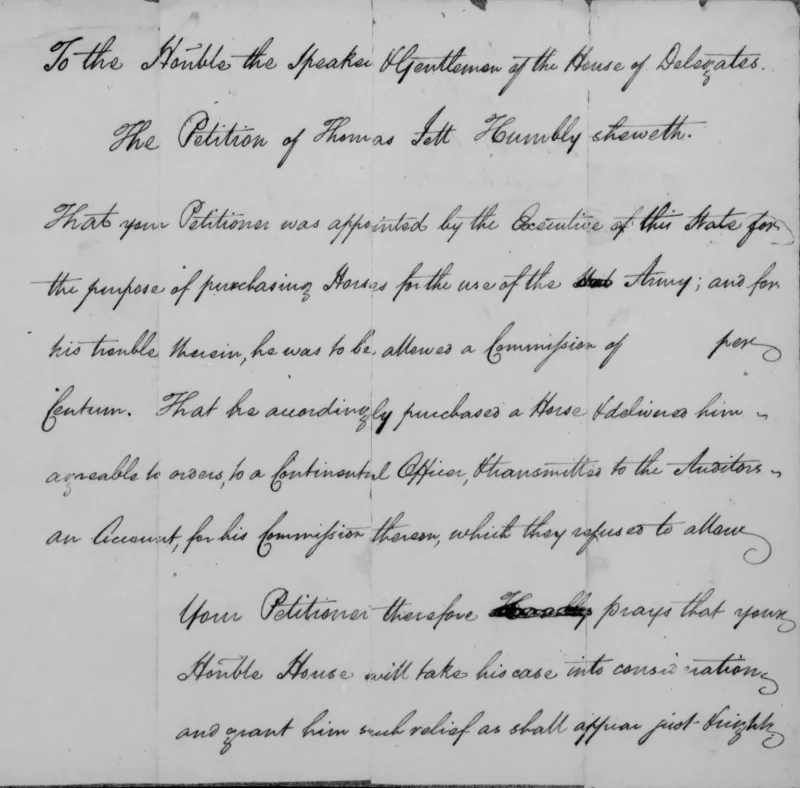 To the Honble the Speaker & Gentlemen of the House of Delegates.
The Petition of Thomas Jett Humbly sheweth.
That your Petitioner was appointed by the Executive of this State for
the purpose of purchasing Horses for the use of the Army; and for
his trouble therein, he was to be allowed a Commission of per
Centum. That he accordingly purchased a Horse & delivered him
agreable to orders, to a Continental Officer, & transmitted to the Auditors
an Account, for his Commission thereon, which they refused to allow
Your Petitioner therefore prays that your
Honble House will take his case into consideration
and grant him such relief as shall appear just & right